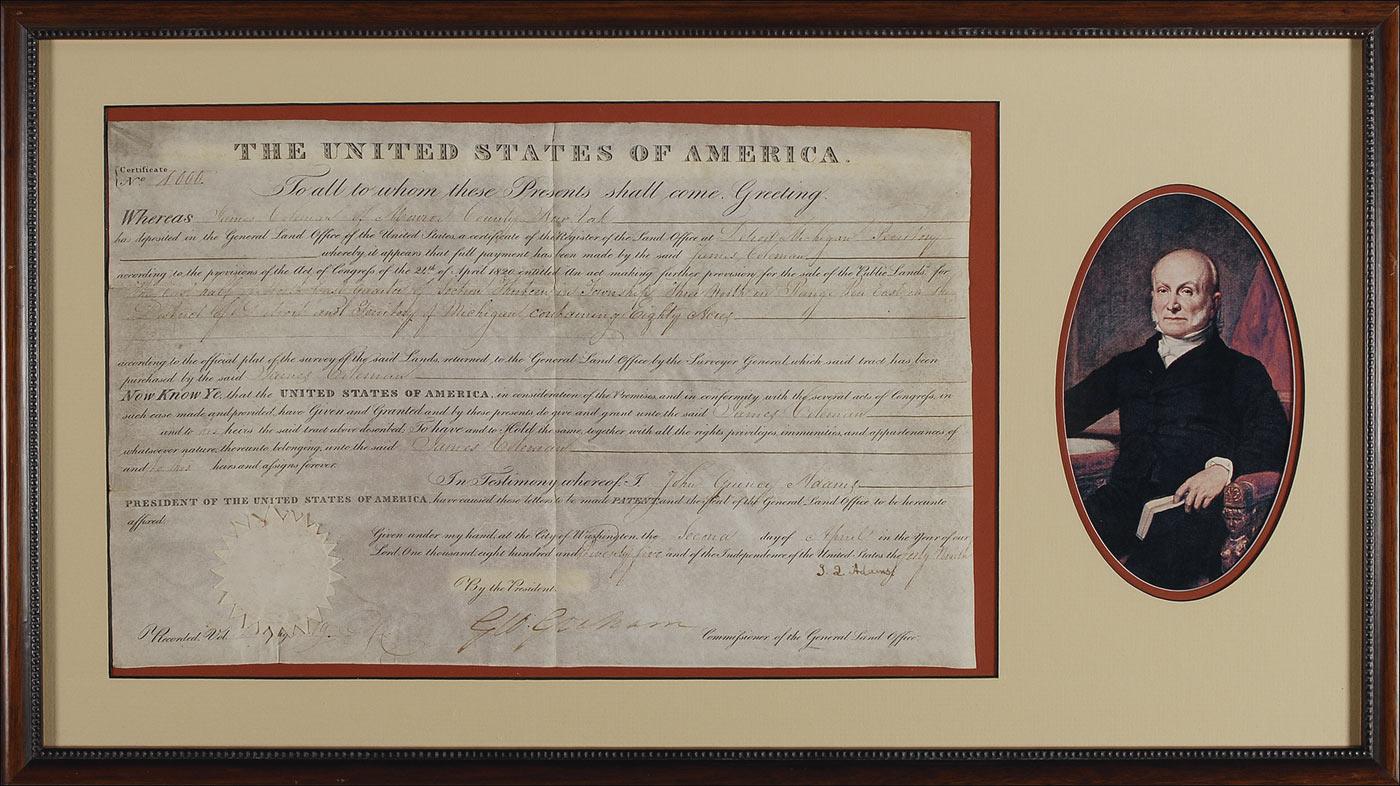 THE UNITED STATES OF AMERICA.
Certificate
No.
To all to whom these Presents shall come, Greeting.
Whereas James Coleman of Monroe County New York
has deposited in the General Land Office of the United States, a certificate of the Register of the Land Office at Detroit Michigan Territory
whereby it appears that full payment has been made by the said James Coleman
according to the provisions of the Act of Congress of the 24th of April 1820, entitled An act making further provision for the sale of the Public Lands, for
The East half of the East Quarter of Section in Township Three North in Range Ten East in the
District of Detroit and Territory of Michigan containing Eighty Acres
according to the official plat of the survey of the said Lands, returned to the General Land Office by the Surveyor General, which said tract has been
purchased by the said James Coleman
Now Know Ye, that the UNITED STATES OF AMERICA, in consideration of the Premises, and in conformity with the several acts of Congress, in
such case made and provided, have Given and Granted, and by these presents do give and grant unto the said James Coleman
and to his heirs the said tract above described. To have and to Hold the same, together with all the rights, privileges, immunities, and appurtenances of
whatsoever nature, thereunto belonging, unto the said James Coleman
and to his heirs and assigns forever.
In Testimony whereof, I John Quincy Adams
PRESIDENT OF THE UNITED STATES OF AMERICA, have caused these letters to be made PATENT, and the Seal of the General Land Office to be hereunto
affixed.
Given under my hand, at the City of Washington, the Second day of April in the Year of our
Lord One thousand, eight hundred and twenty five and of the Independence of the United States the forty Ninth
J. Q. Adams
By the President
Geo. Graham Commissioner of the General Land Office
Recorded, Vol.